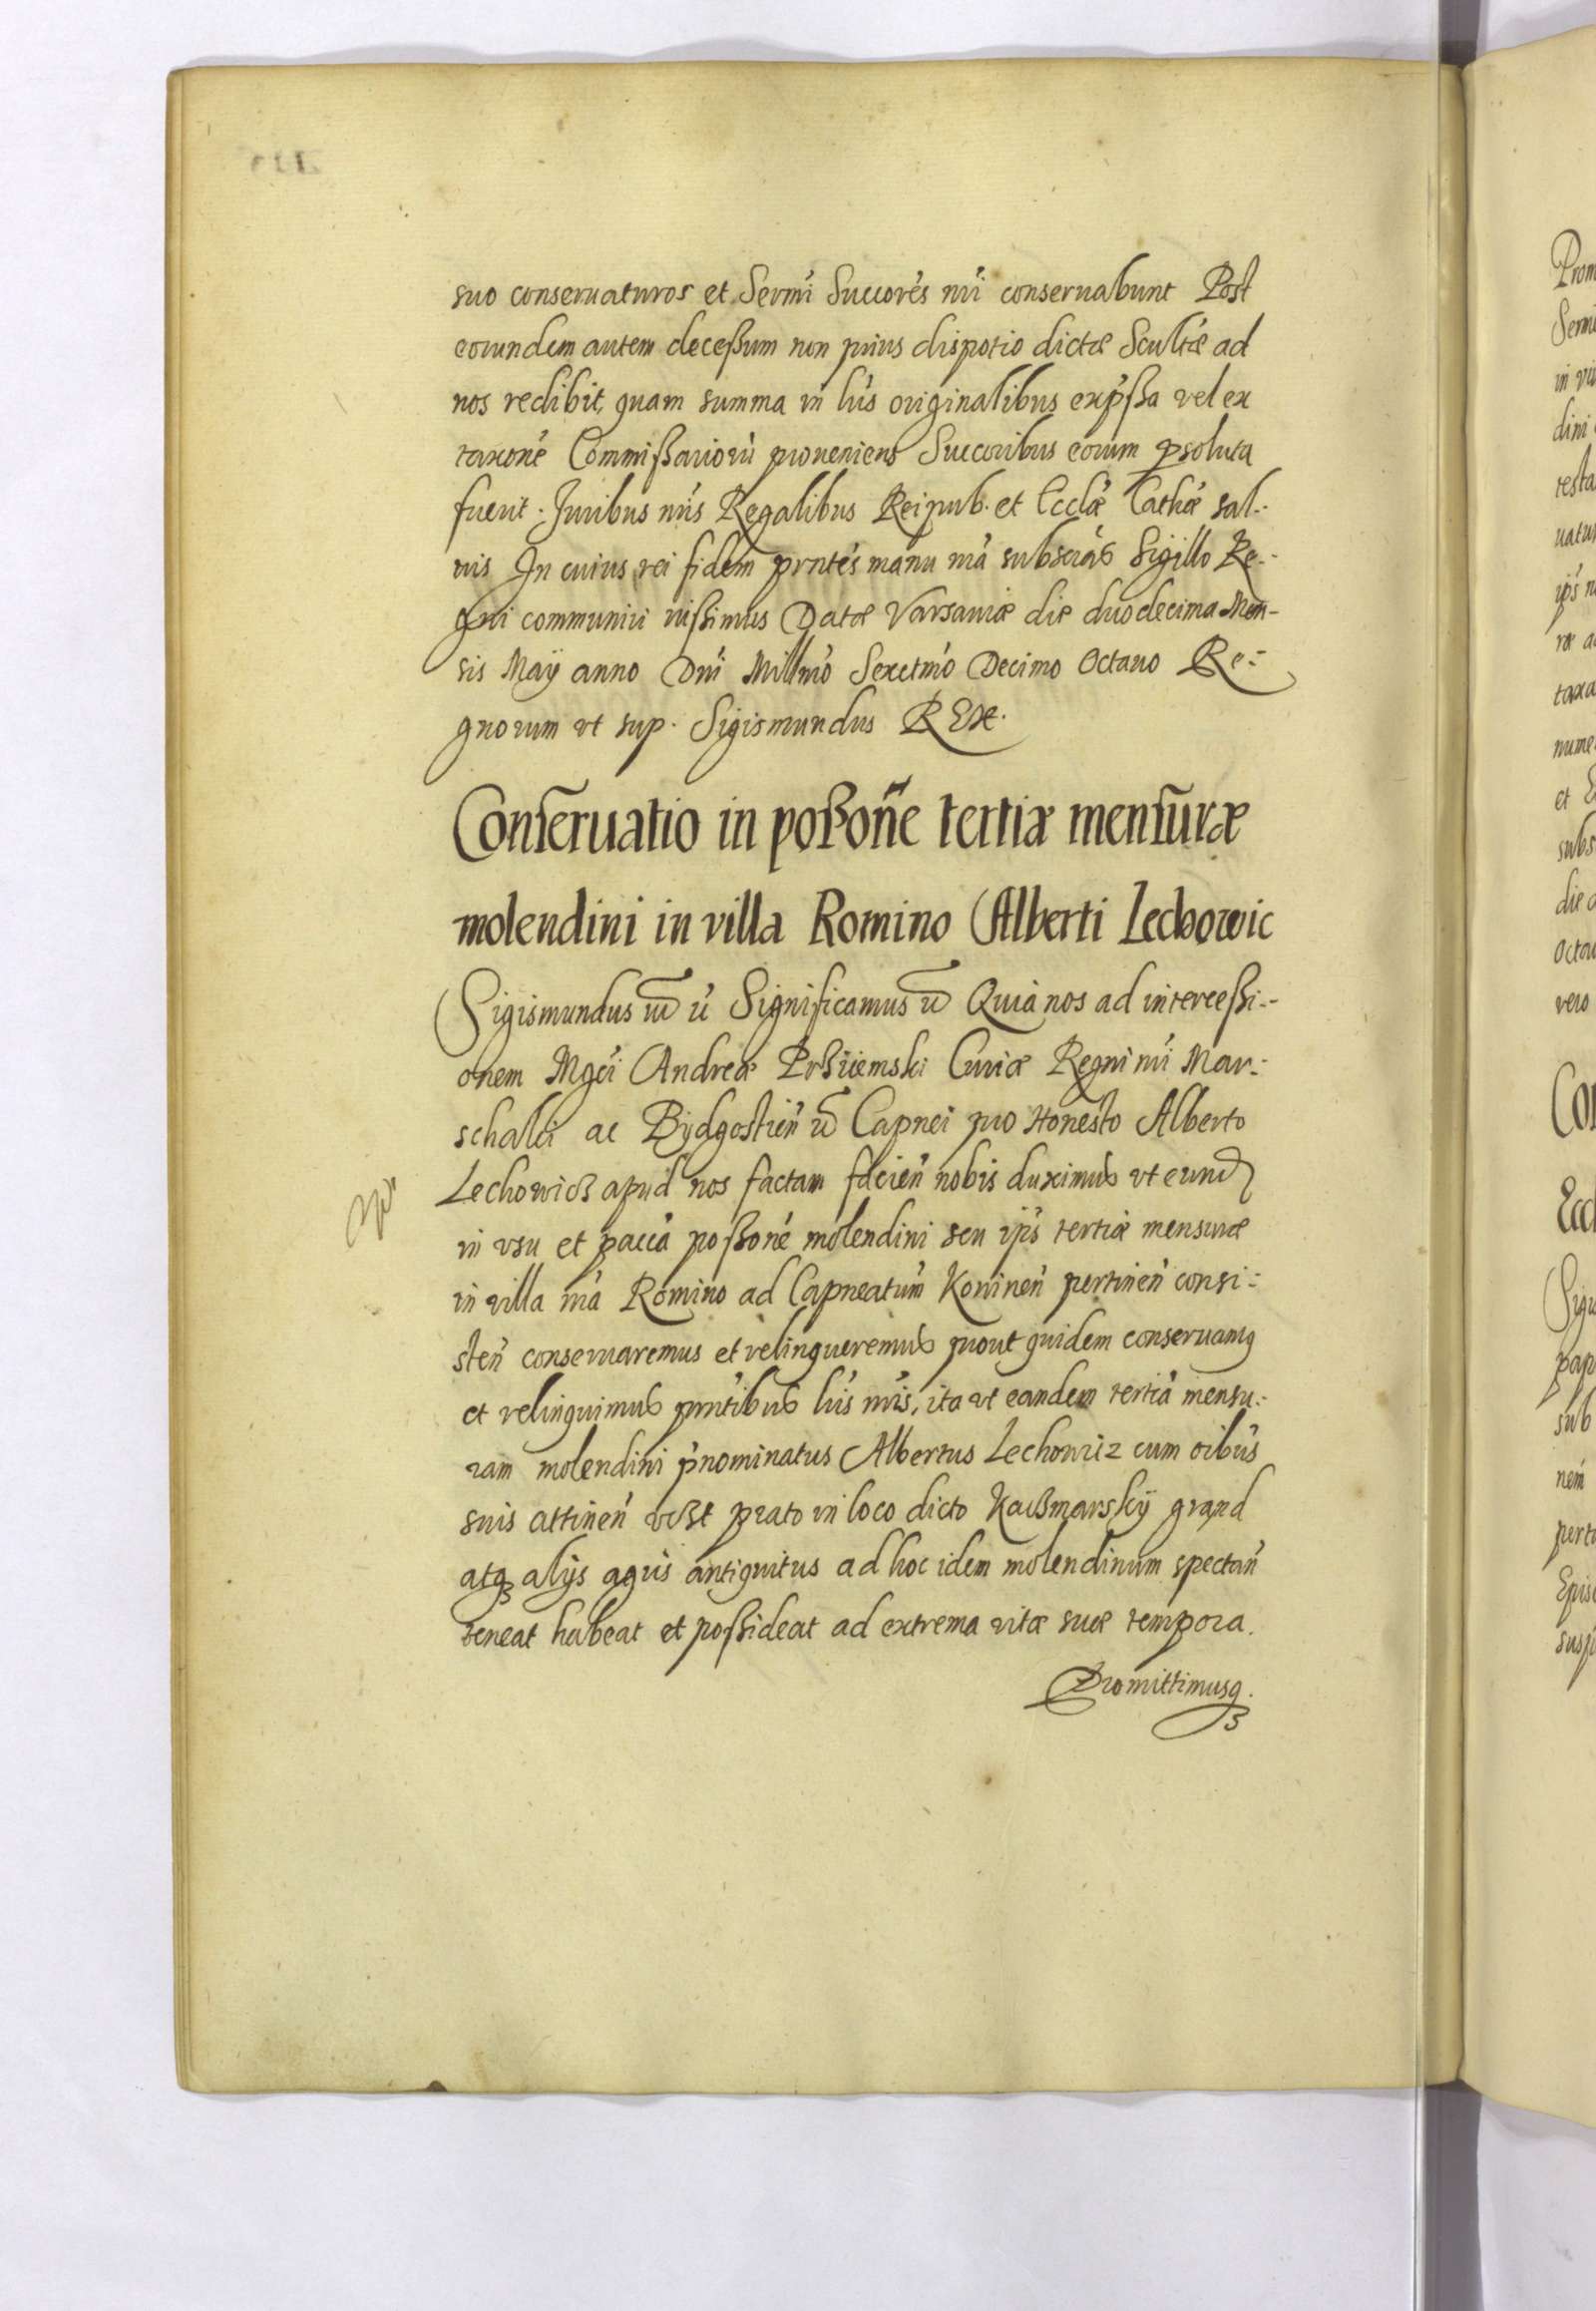 suo conseruaturos et Sermi Succores nri conseruabunt Post
eorundem autem deceßum non prius dispotio dictæ Scultæ ad
nos redibit, quam summa in lris originalibus expßa vel ex
taxone Commißariorũ proueniens Succoribus eorum psoluta
fuerit. Juribus nris Regalibus Reipub. et Ecclæ Cathæ sal-
uis In cuius rei fidem prntes manu nra subscrās Sigillo Re-
gni communiri iußimus Datæ Varsauiæ die duodecima Men-
sis Maÿ anno Dni Millmo Sexctmo Decimo Octauo Re-
gnorum vt sup. Sigismundus REX.
Conseruatio in poßone tertiæ mensuræ
molendini in villa Romino Alberti Lechowic
Sigismundus Significamus Quia nos ad interceßi-
onem Mgci Andreæ Curiæ Regni nri Mar-
schalci ac Bydgostien Capnei pro Honesto Alberto
Lechowicz apud nos factam fácien nobis duximus vt eund
in vsu et pacca poßone molendini seu ips tertiæ mensuræ
in villa nra Romino ad Capneatum Koninen pertinen consi-
sten conseruaremus et relinqueremus prout quidem conseruamq
et relinquimus prntibus lris nris, ita vt eandem tertiā mensu-
ram molendini p̄nominatus Albertus Lechowiz cum oibus
suis attinen prato in loco dicto Kaczmarsky grand
atq alÿs agris antiquitus ad hoc idem molendinum spectan
teneat habeat et poßideat ad extrema vitæ suæ tempora.
Promittimusq.